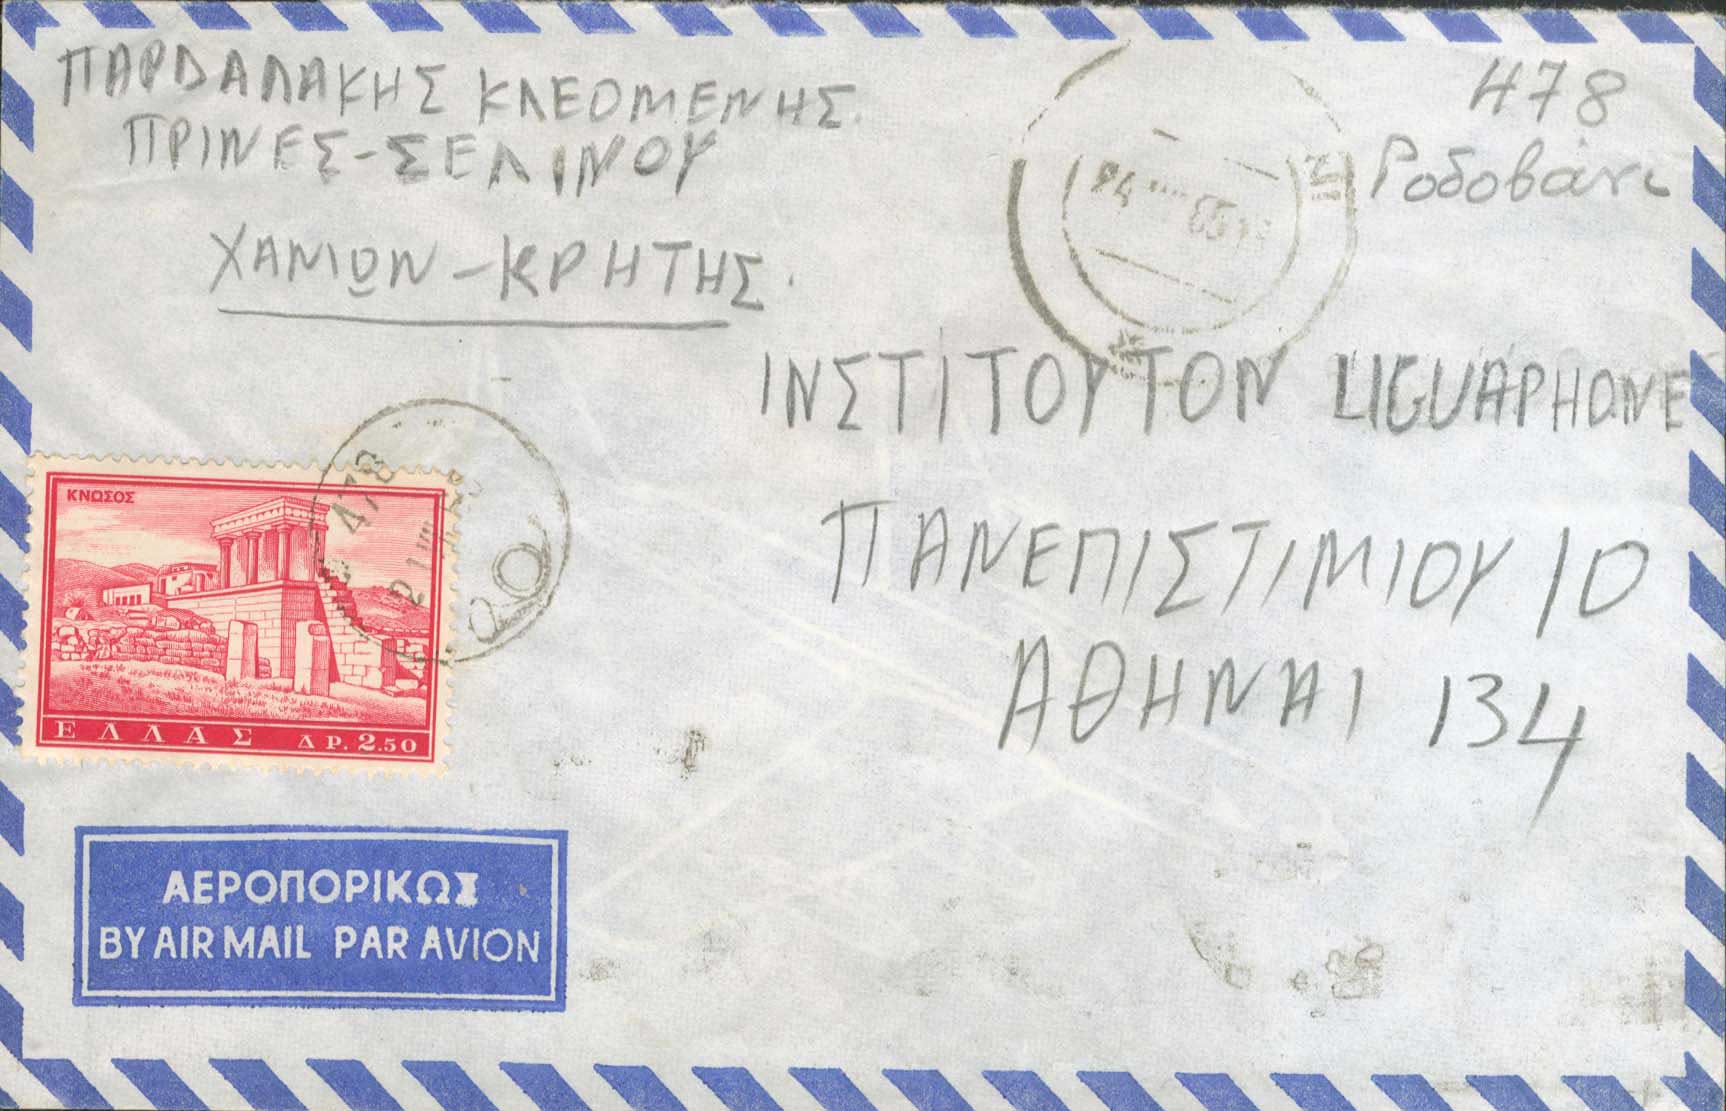 ΠΑΡΔΑΛΑΚΗΣ ΚΛΕΟΜΕΝΗΣ.
ΠΡΙΝΕΣ-ΣΕΛΙΝΟΥ
ΧΑΝΙΩΝ-ΚΡΗΤΗΣ.
478
Ροδοβάνι
ΙΝΣΤΙΤΟΥΤΟΝ LIGUAPHONE
ΠΑΝΕΠΙΣΤΙΜΙΟΥ 10
ΑΘΗΝΑΙ 134
ΚΝΩΣΟΣ
ΕΛΛΑΣ ΔΡ. 2.50
478
21 VIII
ΑΕΡΟΠΟΡΙΚΩΣ
BY AIR MAIL PAR AVION